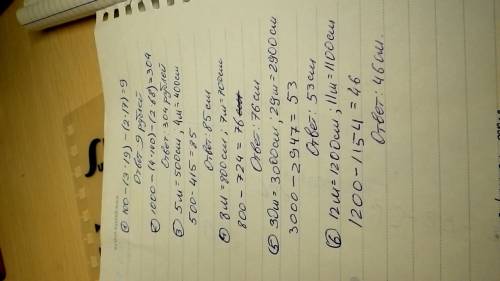 ① 100-(3·19)-(2·17)=9
Ответ: 9 рублей
② 1000-(4·140)-(2·68)=304
Ответ: 304 рублей
③ 5м=500см, 4м=400см
500-415=85
Ответ: 85 см
④ 8м=800см; 7м=700см
800-724=76
Ответ: 76 см
⑤ 30м=3000см; 29м=2900см
3000-2947=53
Ответ: 53 см
⑥ 12м=1200см; 11м=1100см
1200-1154=46
Ответ: 46 см.